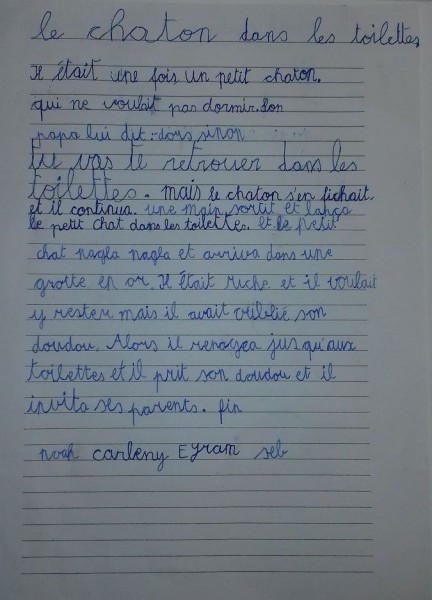 le chaton dans les toilettes
Il était une fois un petit chaton.
qui ne voulait pas dormir. Son
papa lui dit :- dors sinon
tu vas te retrouver dans les
toilettes. mais le chaton s'en fichait.
et il continua. une main sortit et lança
le petit chat dans les toilettes. Et le petit
chat nagea nagea et arriva dans une
grotte en or. Il était riche et il voulait
y rester mais il avait oublié son
doudou. Alors il renagea jusqu'aux
toilettes et il prit son doudou et il
invita ses parents. fin
noah carleny Eyram seb